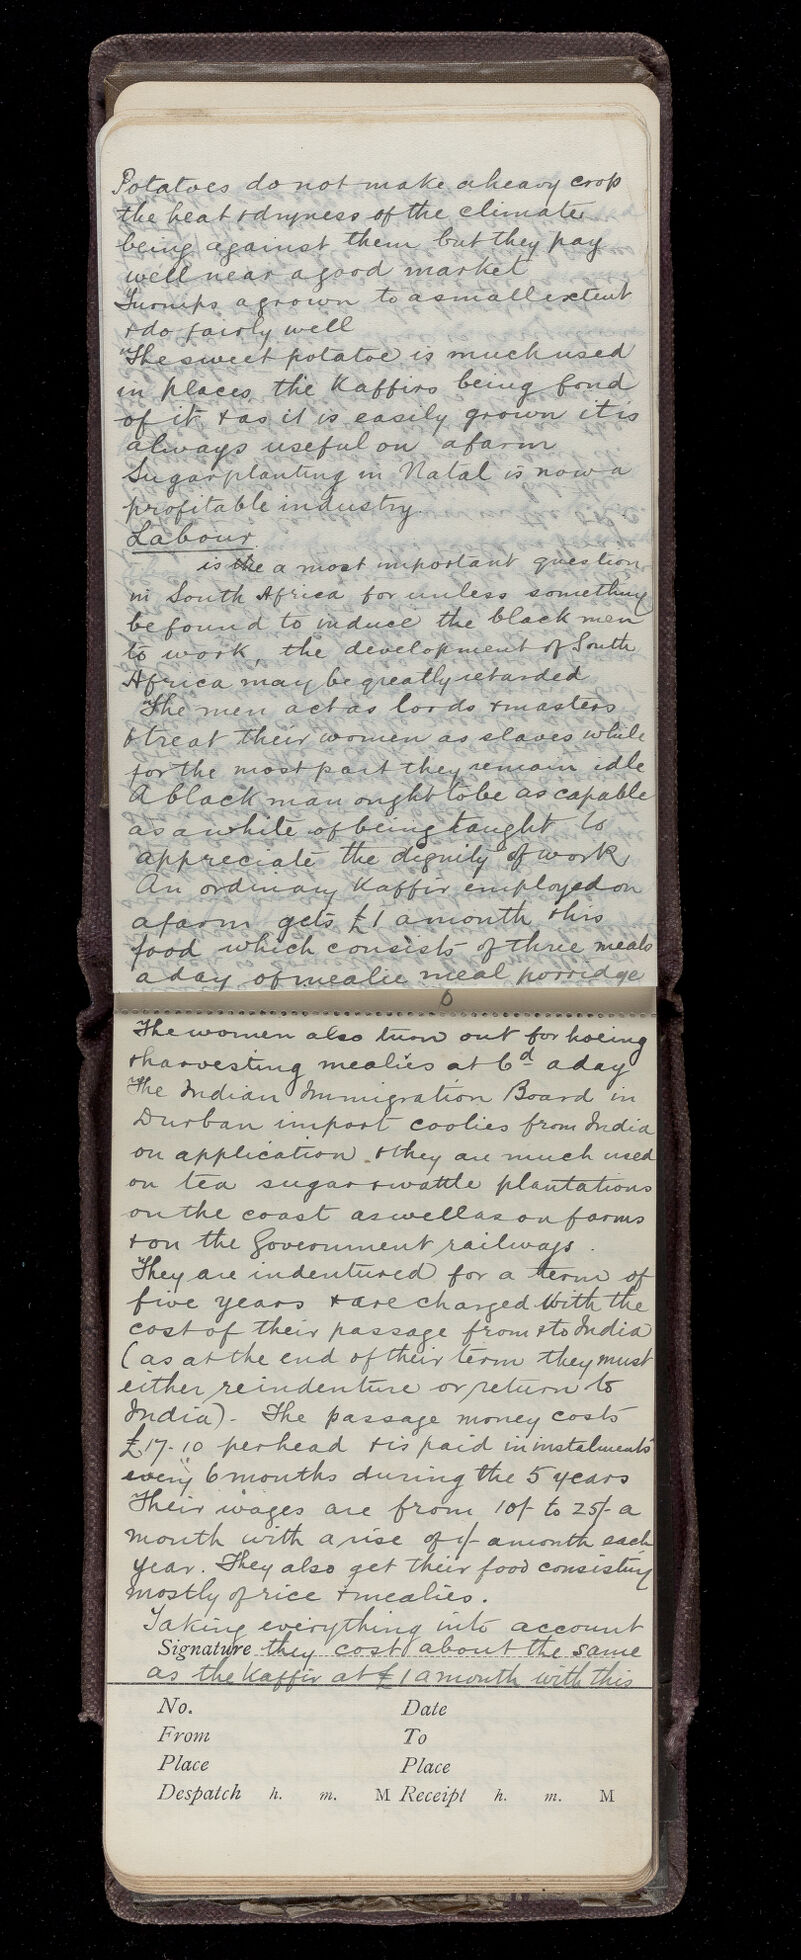 Potatoes do not make a heavy crop
the heat & dryness of the climate
being against them but they pay
well near a good market
Turnips a grown to a small extent
& do fairly well
The sweet potatoe is much used
in places, the Kaffirs being fond
of it & as it is easily grown it is
always useful on a farm
Sugar planting in Natal is now a
profitable industry.
Labour
is the a most important question
in South Africa for unless something
be found to induce the black men
to work, the development of South
Africa may be greatly retarded
The men act as lords & masters
& treat their women as slaves while
for the most part they remain idle
A black man ought to be as capable
as a white of being taught to
appreciate the dignity of work
An ordinary Kaffir employed on
a farm gets £1 a month & his
food which consists of three meals
a day of mealie meal porridge
The women also turn out for hoeing
& harvesting mealies at 6d a day
The Indian Immigration Board in
Durban import coolies from India
on application & they are much used
on tea sugar & wattle plantations
on the coast as well as on farms
& on the Government railways.
They are indentured for a term of
five years & are charged with the
cost of their passage from & to India
(as at the end of their term they must
either reindenture or return to
India). The passage money costs
£17-10 per head & is paid in instalments
every 6 months during the 5 years
Their wages are from 10/- to 25/- a
month with a rise of 1/- a month each
year. They also get their food consisting
mostly of rice & mealies.
Taking everything into account
Signature they cost about the same
as the Kaffir at £1 a month with this
No. Date
From To
Place Place
Despatch h. m. M Receipt h. m. M